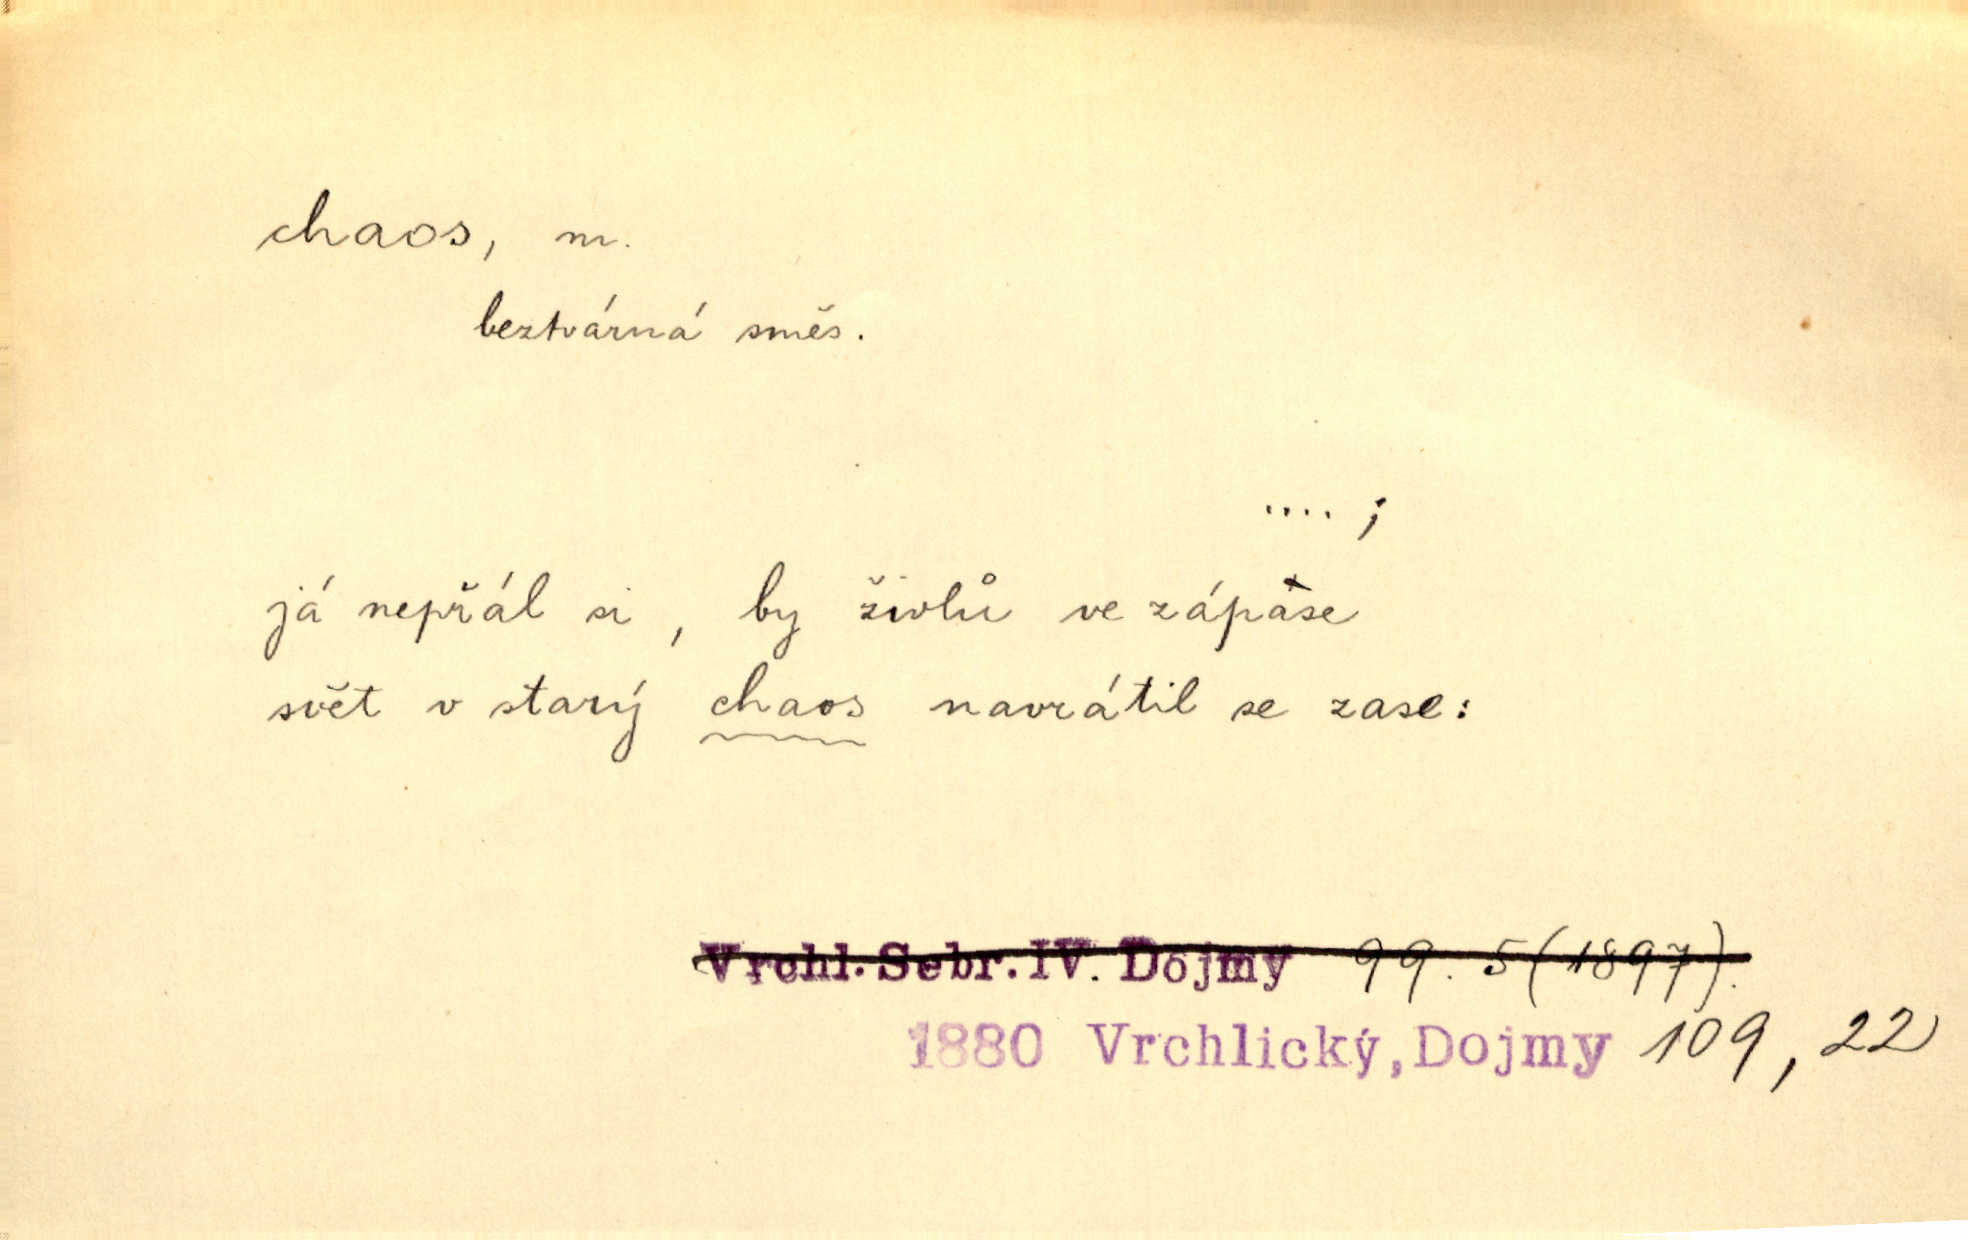 chaos, m.
beztvárná směs.
.... ;
já nepřál si, by živlů ve zápase
svět v starý chaos navrátil se zase:
Vrchl. Sebr. IV. Dojmy 99. 5 (1897).
1880 Vrchlický, Dojmy 109, 22